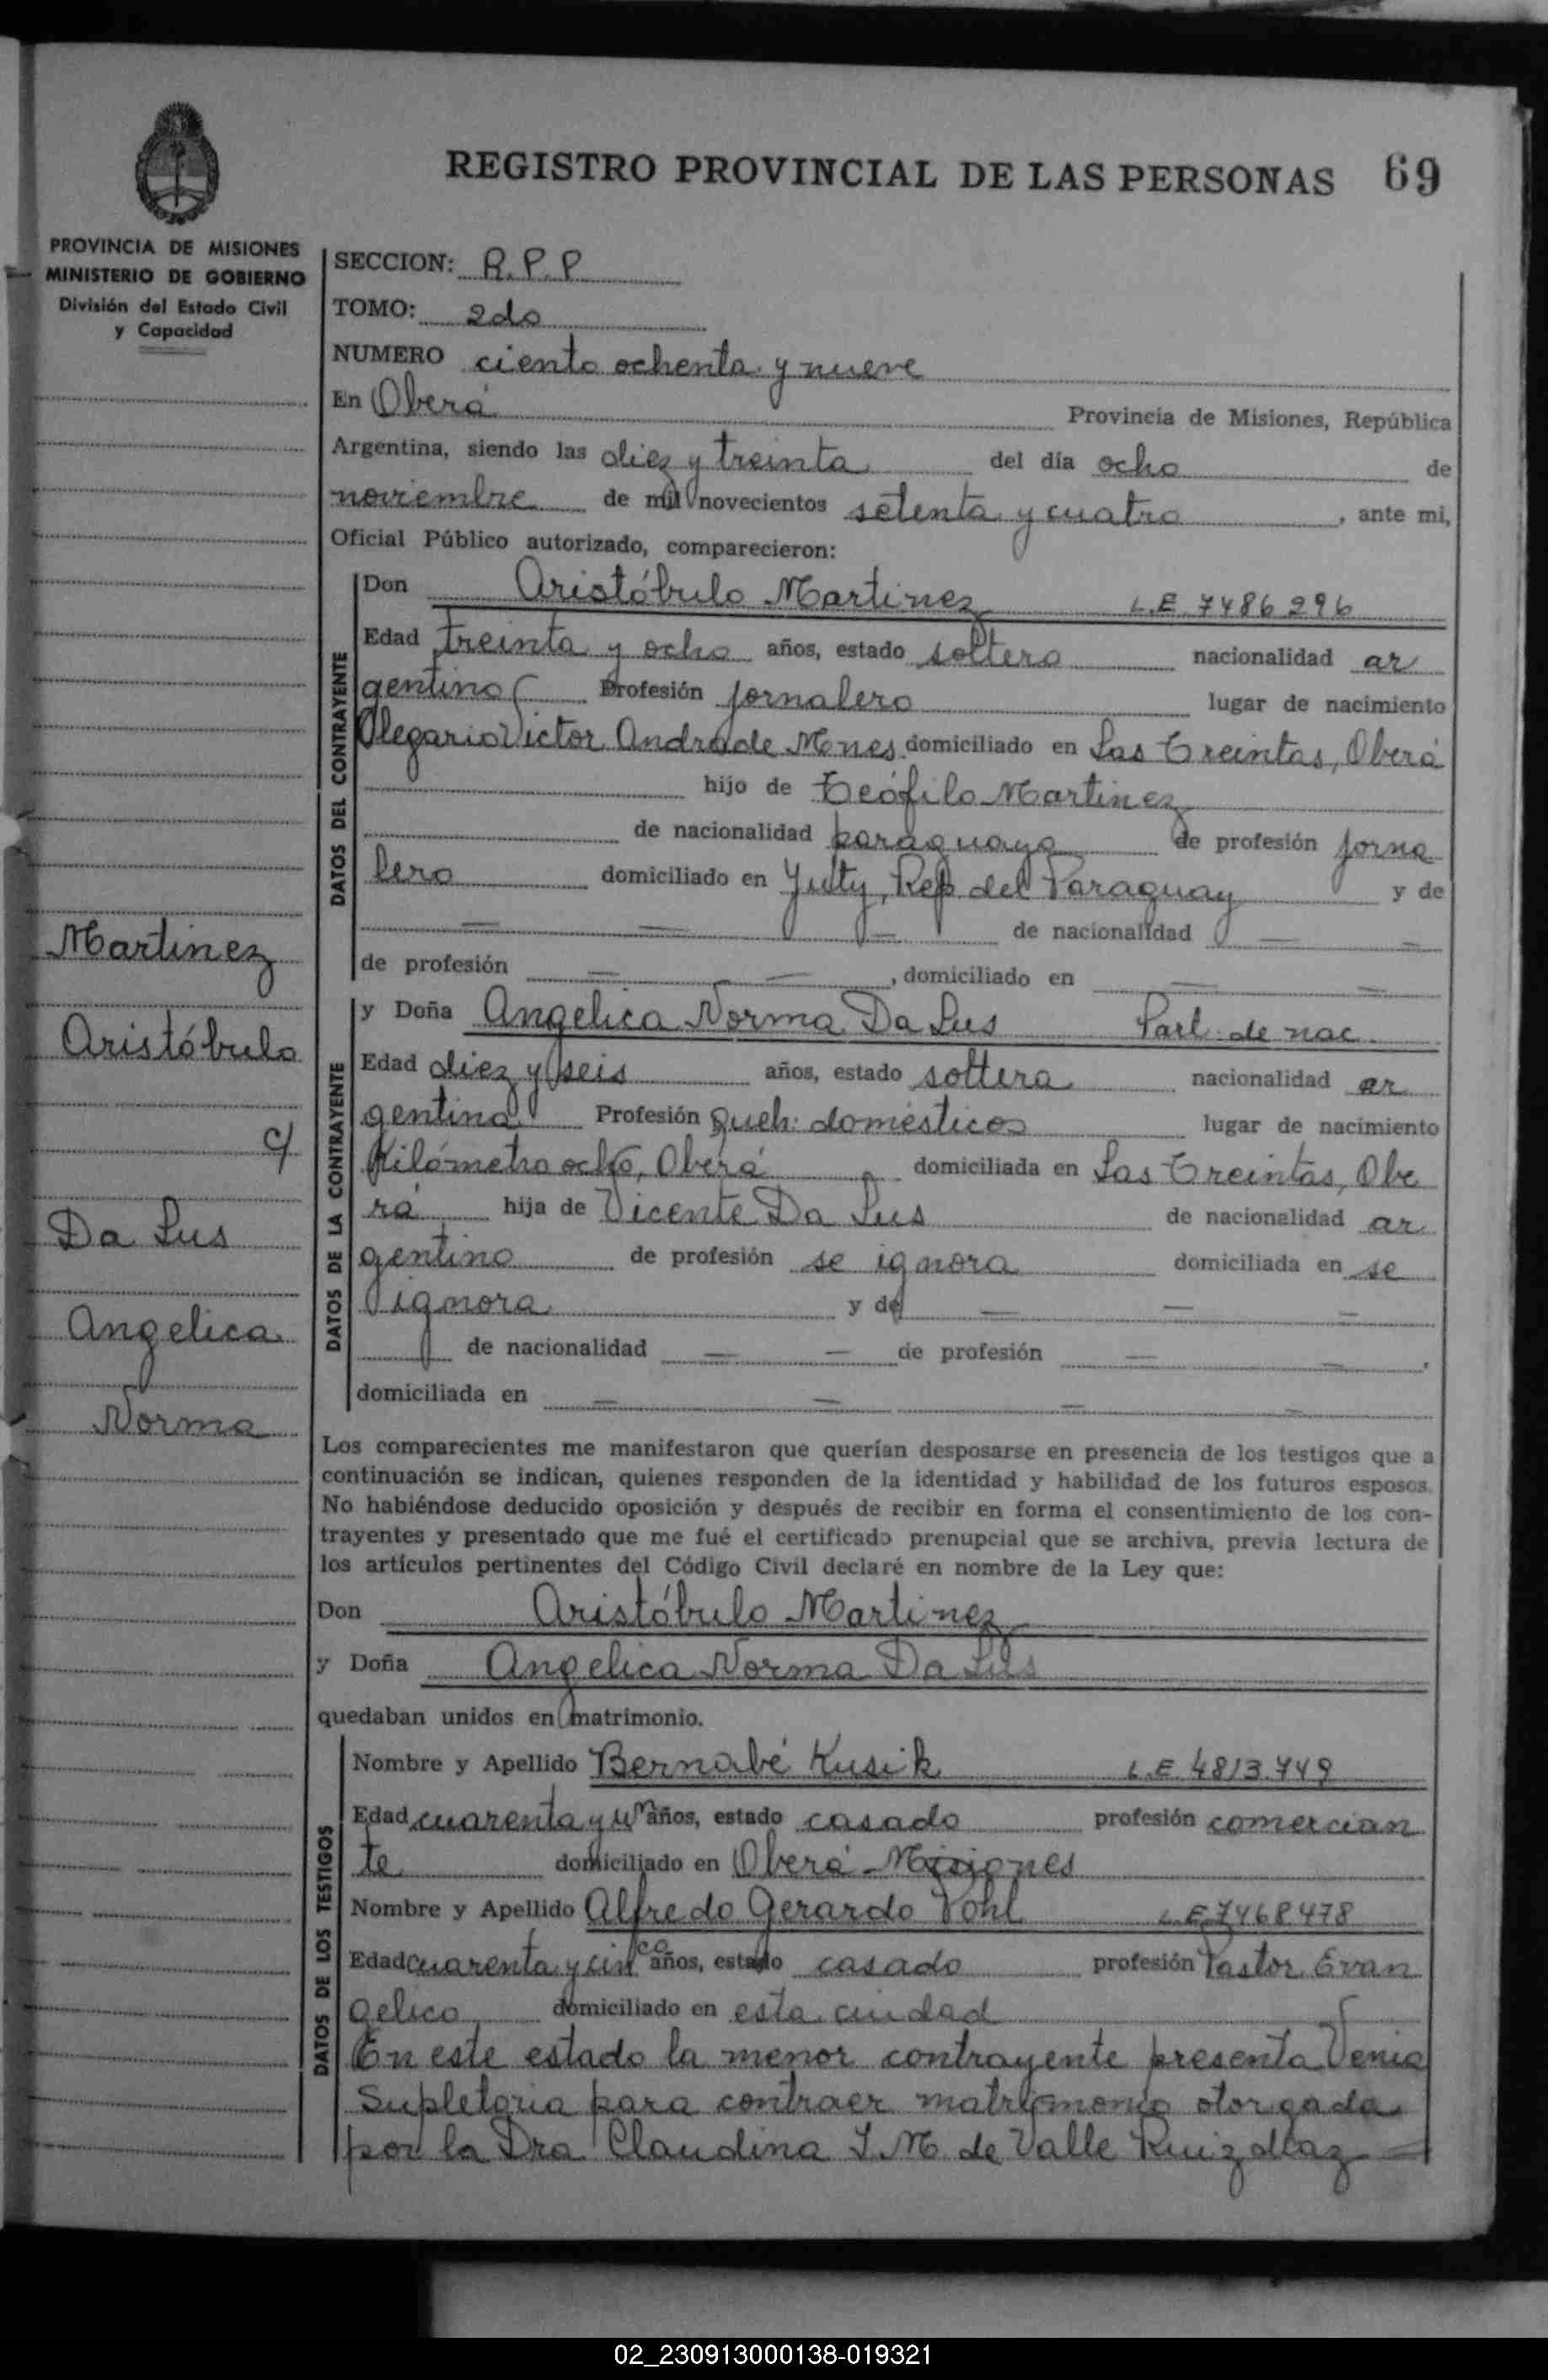 REGISTRO PROVINCIAL DE LAS PERSONAS 69
PROVINCIA DE MISIONES
MINISTERIO DE GOBIERNO
División del Estado Civil
y Capacidad
SECCION: R.P.P
TOMO: 2do
NUMERO ciento ochenta y nueve
En Oberá Provincia de Misiones, República
Argentina, siendo las diez y treinta del día ocho de
noviembre de mil novecientos setenta y cuatro, ante mi,
Oficial Público autorizado, comparecieron:
DATOS DEL CONTRAYENTE
Don Aristóbulo Martinez L.E 7486296
Edad treinta y ocho años, estado soltero nacionalidad ar
gentino Profesión jornalero lugar de nacimiento
Olegario Victor Andrade Mnes domiciliado en Las Treintas, Oberá
hijo de Teófilo Martinez
de nacionalidad paraguaya de profesión jorna
lero domiciliado en Yuty, Rep del Paraguay y de
— — — de nacionalidad — —
de profesión — —, domiciliado en — —
Martinez
Aristóbulo
c/
Da Lus
Angelica
Norma
DATOS DE LA CONTRAYENTE
y Doña Angelica Norma Da Lus Part. de nac.
Edad diez y seis años, estado soltera nacionalidad ar
gentina Profesión queh. domésticos lugar de nacimiento
Kilómetro ocho, Oberá domiciliada en Las Treintas, Obe
rá hija de Vicente Da Lus de nacionalidad ar
gentino de profesión se ignora domiciliada en se
ignora y de — — —
de nacionalidad — — de profesión — —,
domiciliada en — — — —
Los comparecientes me manifestaron que querían desposarse en presencia de los testigos que a
continuación se indican, quienes responden de la identidad y habilidad de los futuros esposos.
No habiéndose deducido oposición y después de recibir en forma el consentimiento de los con-
trayentes y presentado que me fué el certificado prenupcial que se archiva, previa lectura de
los artículos pertinentes del Código Civil declaré en nombre de la Ley que:
Don Aristóbulo Martinez
y Doña Angelica Norma Da Lus
quedaban unidos en matrimonio.
DATOS DE LOS TESTIGOS
Nombre y Apellido Bernabé Kusik L.E 4813.749
Edad cuarenta y un años, estado casado profesión comercian
te domiciliado en Oberá Misiones
Nombre y Apellido Alfredo Gerardo Pohl L.E 7468478
Edad cuarenta y cinco años, estado casado profesión Pastor Evan
gelico domiciliado en esta ciudad
En este estado la menor contrayente presenta Venia
Supletoria para contraer matrimonio otorgada
por la Dra Claudina I. M. de Valle Ruizdiaz —
02_230913000138-019321